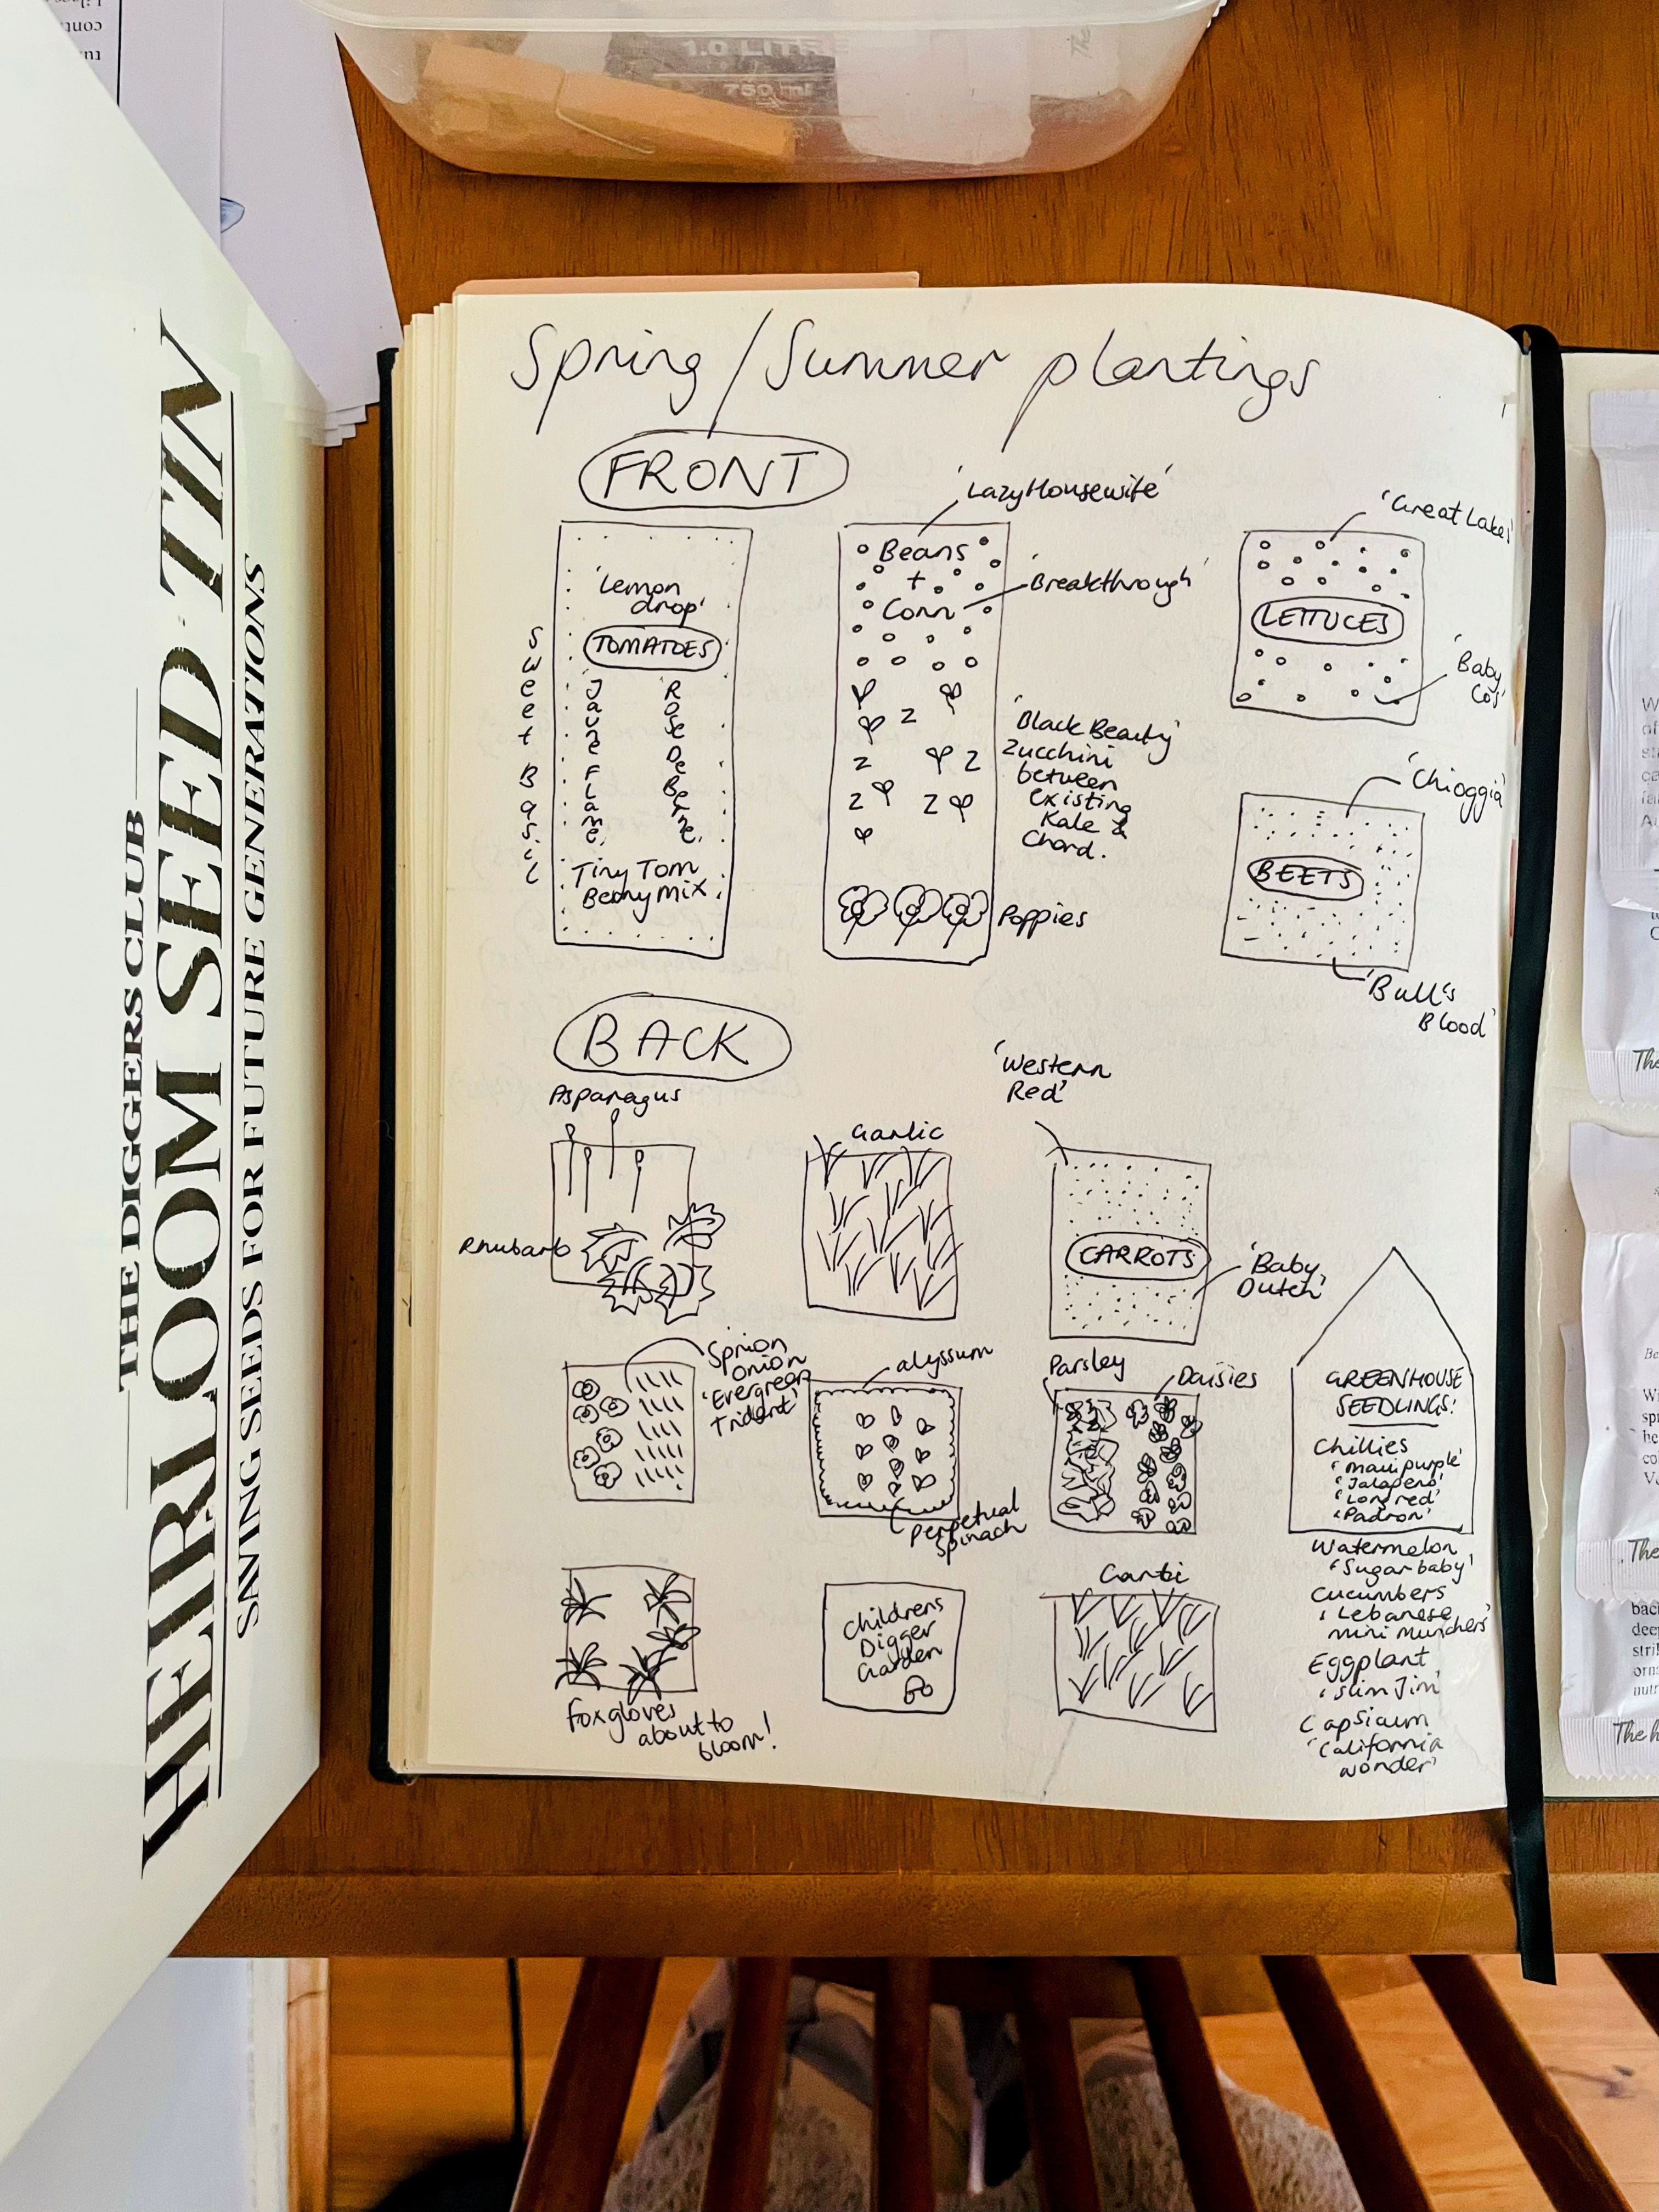 THE DIGGERS CLUB
HEIRLOOM SEED TIN
SAVING SEEDS FOR FUTURE GENERATIONS
1.0 LITRE
750 ml
Spring / Summer plantings
FRONT
'Lemon
drop'
TOMATOES
Sweet Basil
Jaune Flamé
Rose De Berne
Tiny Tom
Berry Mix
'Lazy Housewife'
Beans
+
Corn
'Breakthrough'
z
z z
z z
'Black Beauty'
Zucchini
between
existing
Kale &
Chard.
Poppies
'Great Lakes'
LETTUCES
'Baby
Cos'
'Chioggia'
BEETS
'Bull's
Blood'
BACK
Asparagus
Rhubarb
Garlic
'Western
Red'
CARROTS
'Baby
Dutch'
Sprion
Onion
'Evergreen
Trident'
alyssum
Perpetual
Spinach
Parsley
Daisies
foxgloves
about to
bloom!
Childrens
Digger
Garden
GREENHOUSE
SEEDLINGS:
Chillies
'Maui purple'
'Jalapeno'
'Long red'
'Padron'
Watermelon
'Sugarbaby'
Cucumbers
'Lebanese
mini munchers'
Eggplant
'Slim Jim'
Capsicum
'California
wonder'